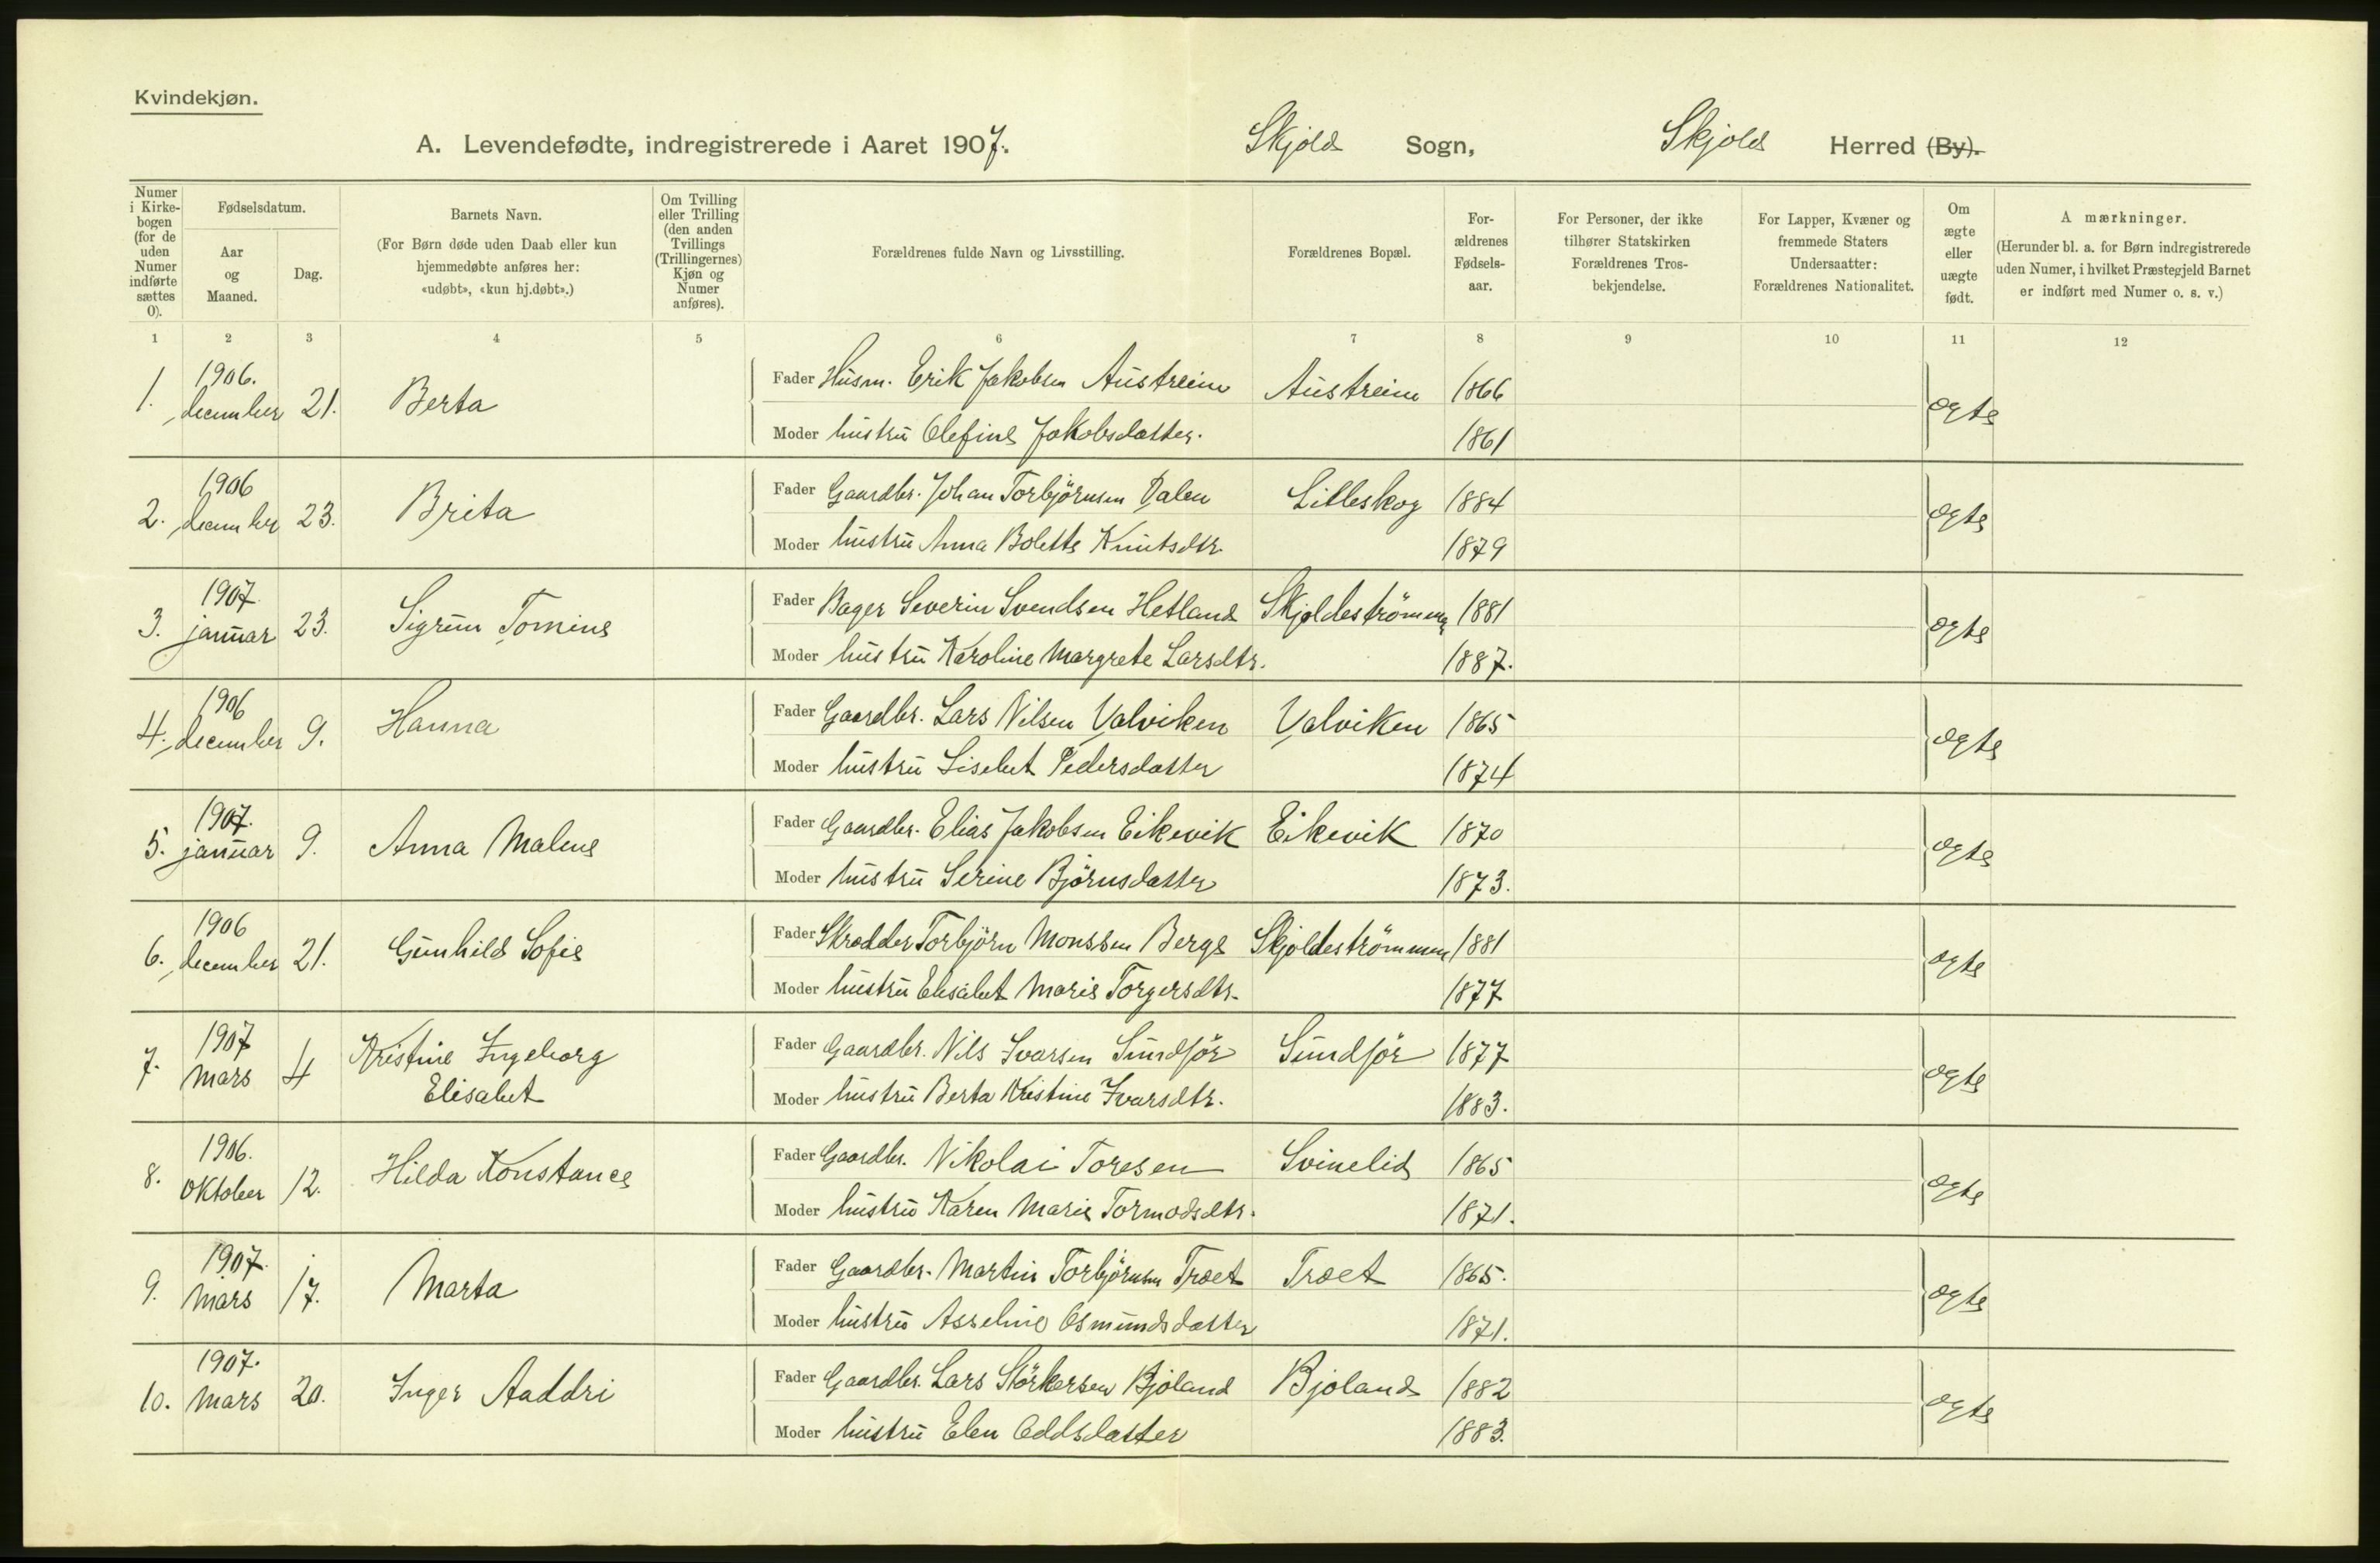 Kvindekjøn.
A. Levendefødte, indregistrerede i Aaret 1907. Skjold Sogn, Skjold Herred (By).
Numer i Kirkebogen (for de uden Numer indførte sættes 0).
Fødselsdatum.
Aar og Maaned.
Dag.
Barnets Navn.
(For Børn døde uden Daab eller kun hjemmedøbte anføres her: «udøbt», «kun hj.døbt».)
Om Tvilling eller Trilling (den anden Tvillings (Trillingernes) Kjøn og Numer anføres).
Forældrenes fulde Navn og Livsstilling.
Forældrenes Bopæl.
Forældrenes Fødselsaar.
For Personer, der ikke tilhører Statskirken Forældrenes Trosbekjendelse.
For Lapper, Kvæner og fremmede Staters Undersaatter: Forældrenes Nationalitet.
Om ægte eller uægte født.
A mærkninger.
(Herunder bl. a. for Børn indregistrerede uden Numer, i hvilket Præstegjeld Barnet er indført med Numer o. s. v.)
1 2 3 4 5 6 7 8 9 10 11 12
1. 1906. december 21. Berta
Fader Husm. Erik Jakobsen Austreim Austreim 1866 ægte
Moder hustru Olefine Jakobsdatter. 1861
2. 1906 december 23. Brita
Fader Gaardbr. Johan Torbjörnsen Dalen Litleskog 1884 ægte
Moder hustru Anna Bolette Knutsdtr. 1879
3. 1907. januar 23. Sigrun Tomine
Fader Bager Severin Svendsen Hetland Skjoldeströmmen 1881 ægte
Moder hustru Karoline Margrete Larsdtr. 1887.
4. 1906 december 9. Hanna
Fader Gaardbr. Lars Nilsen Valviken Valviken 1865 ægte
Moder hustru Lisebet Pedersdatter 1874
5. 1907. januar 9. Anna Malene
Fader Gaardbr. Elias Jakobsen Eikevik Eikevik 1870 ægte
Moder hustru Serine Björnsdatter 1873.
6. 1906 december 21. Gunhild Sofie
Fader Skrædder Torbjörn Monssen Berge Skjoldeströmmen 1881 ægte
Moder hustru Elisabet Marie Torgersdtr. 1877
7. 1907 Mars 4 Kristine Ingeborg
Elisabet
Fader Gaardbr. Nils Ivarsen Sundför Sundför 1877 ægte
Moder hustru Berta Kristine Ivarsdtr. 1883.
8. 1906. Oktober 12. Hilda Konstance
Fader Gaardbr. Nikolai Toresen Svinelid 1865 ægte
Moder hustru Karen Marie Tormodsdtr. 1871.
9. 1907. Mars 17. Marta
Fader Gaardbr. Martin Torbjörnsen Træet Træet 1865. ægte
Moder hustru Asseline Osmundsdatter 1871.
10. 1907. Mars 20. Inger Aaddri
Fader Gaardbr. Lars Störkersen Bjoland Bjoland 1882 ægte
Moder hustru Elen Oddsdatter 1883.